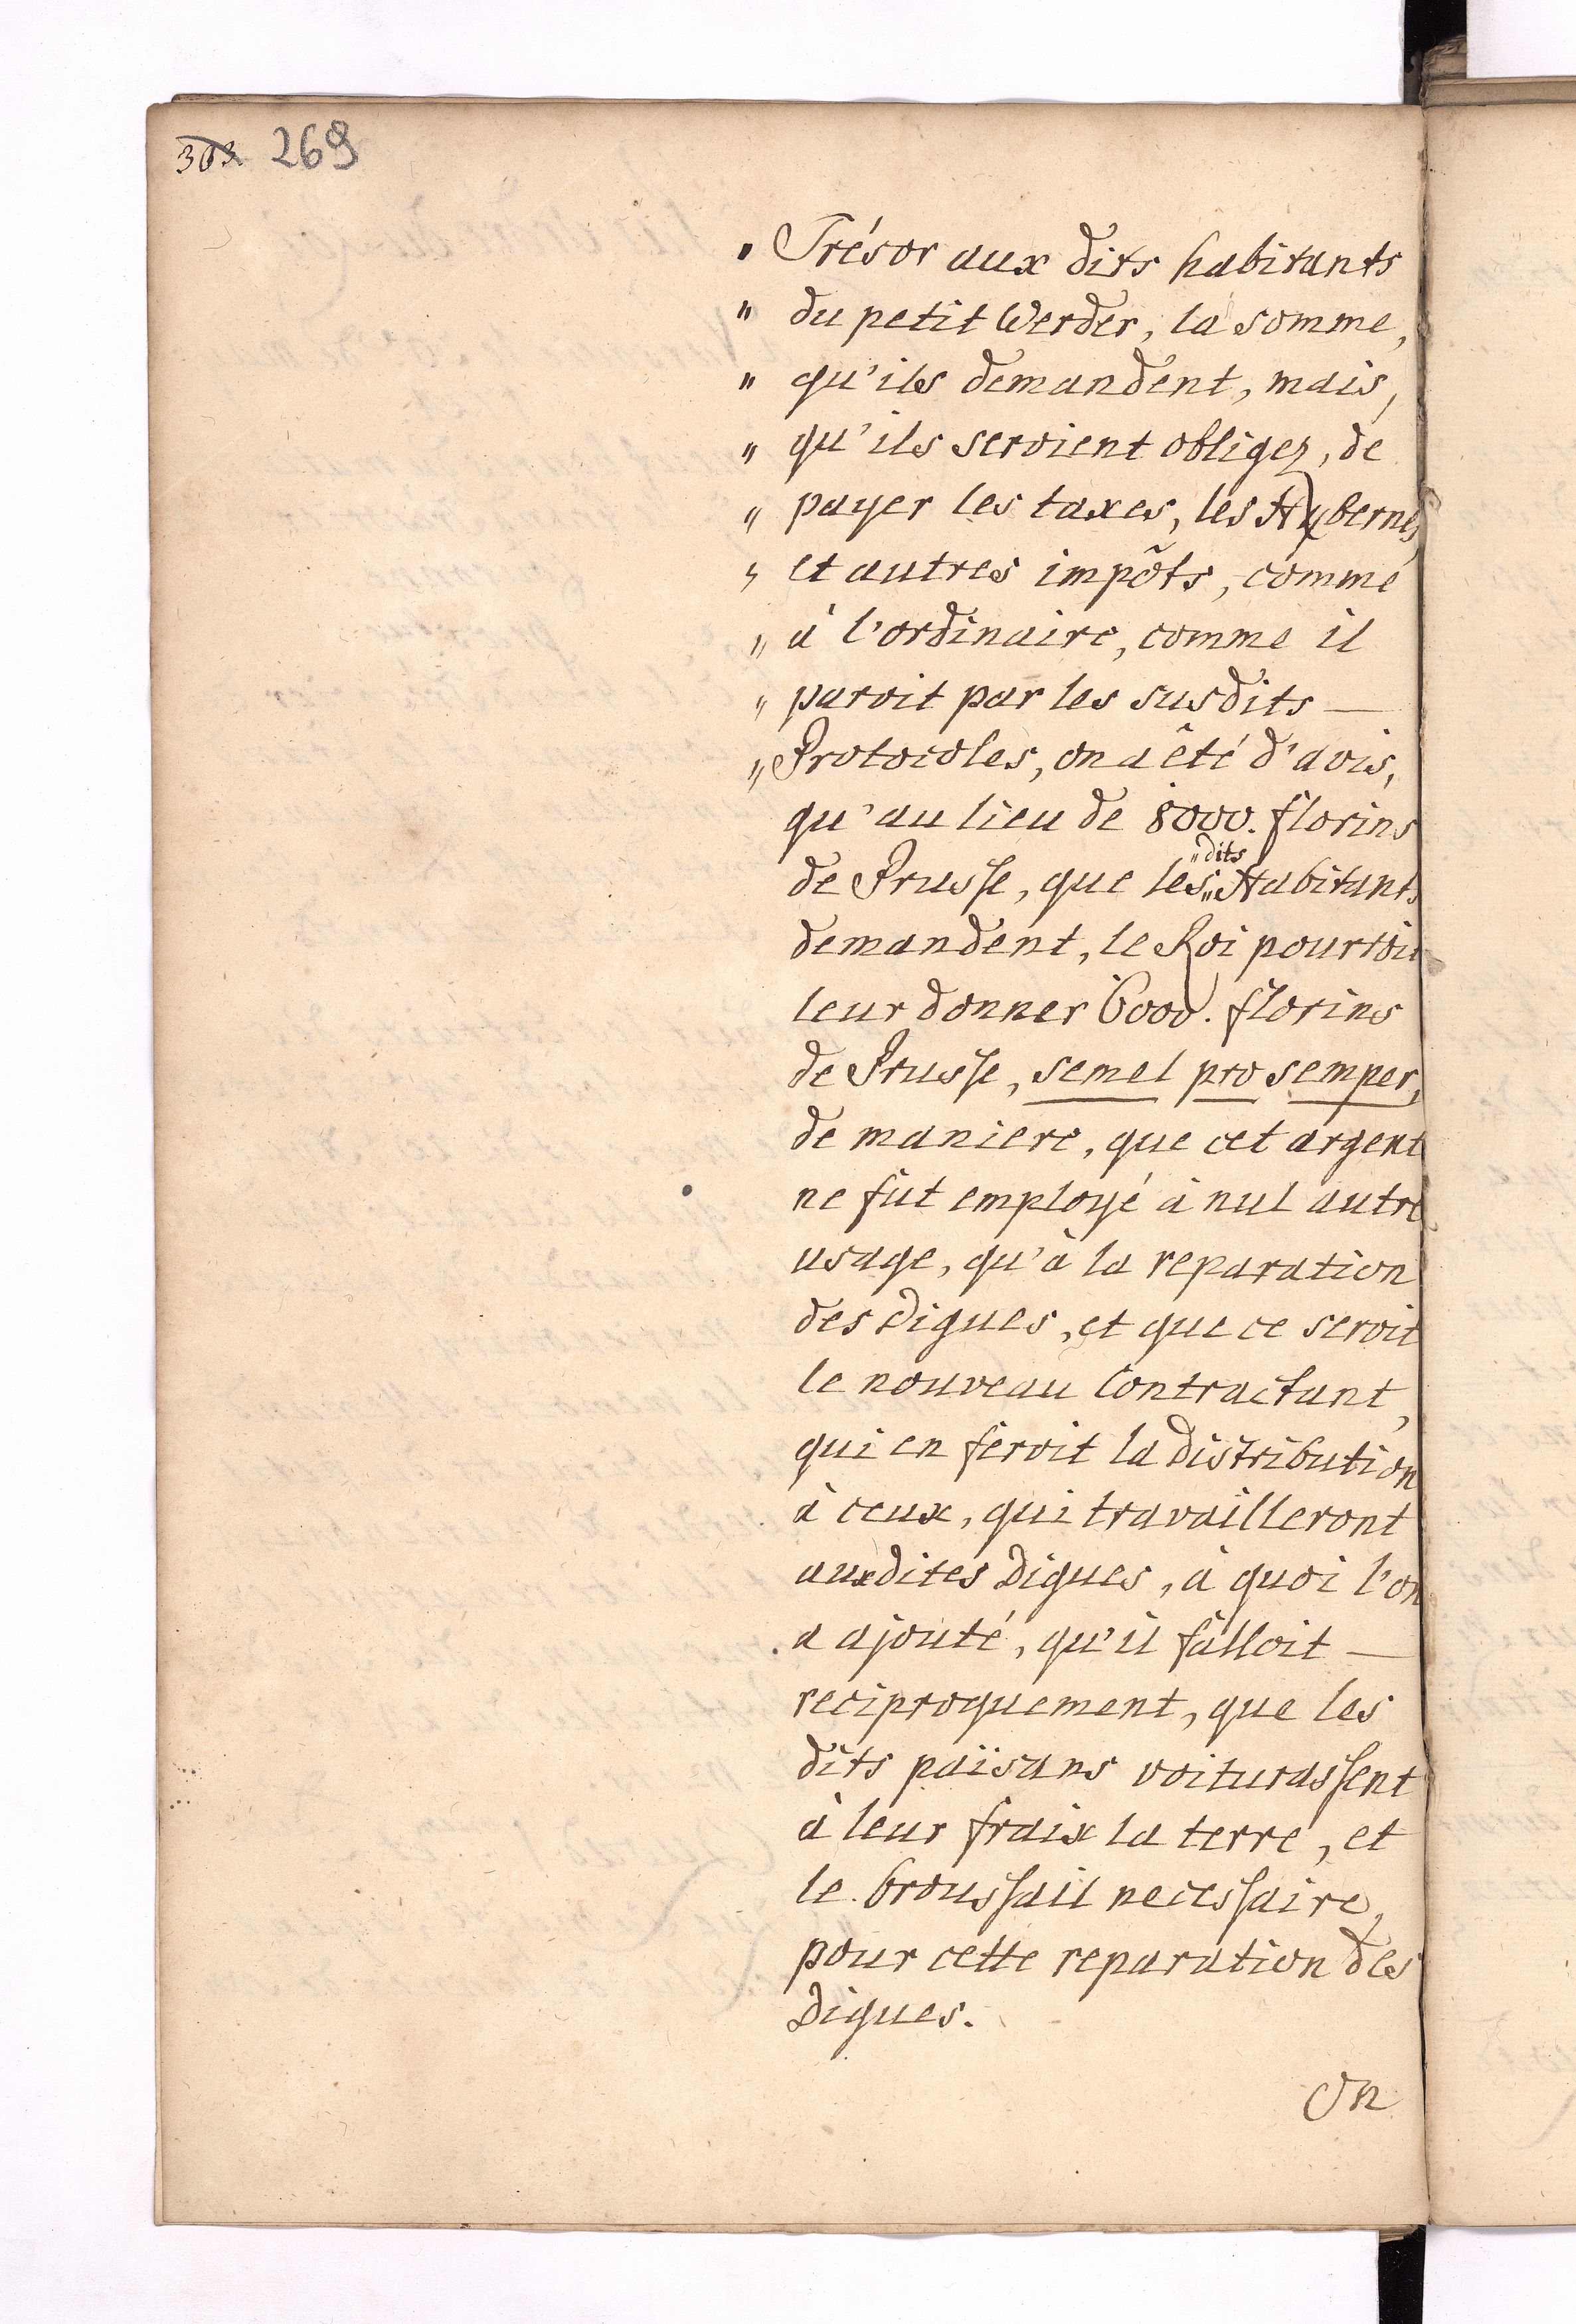 269
" Trésor aux dits habitants
" du petit Werder, la somme,
" qu'ils demandent, mais,
" qu'ils seroient obligez, de
" payer les taxes, les Hybernes,
" et autres impôts, comme
" à l'ordinaire, comme il
" paroit par les susdits —
" Protocoles, on a êté d'avis,
qu'au lieu de 8000. florins
de Prusse, que les "dits" Habitants
demandent, le Roi pourroit
leur donner 6000. florins
de Prusse, semel pro semper,
de maniere, que cet argent
ne fut employé à nul autre
usage, qu'à la reparation
des Digues, et que ce seroit
le nouveau Contractant,
qui en feroit la Distribution
à ceux, qui travailleront
auxdites Digues, à quoi l'on
a ajouté, qu'il falloit —
reciproquement, que les
dits païsans voiturassent
à leur fraix la terre, et
le broussail necessaire,
pour cette reparation des
Digues.
On